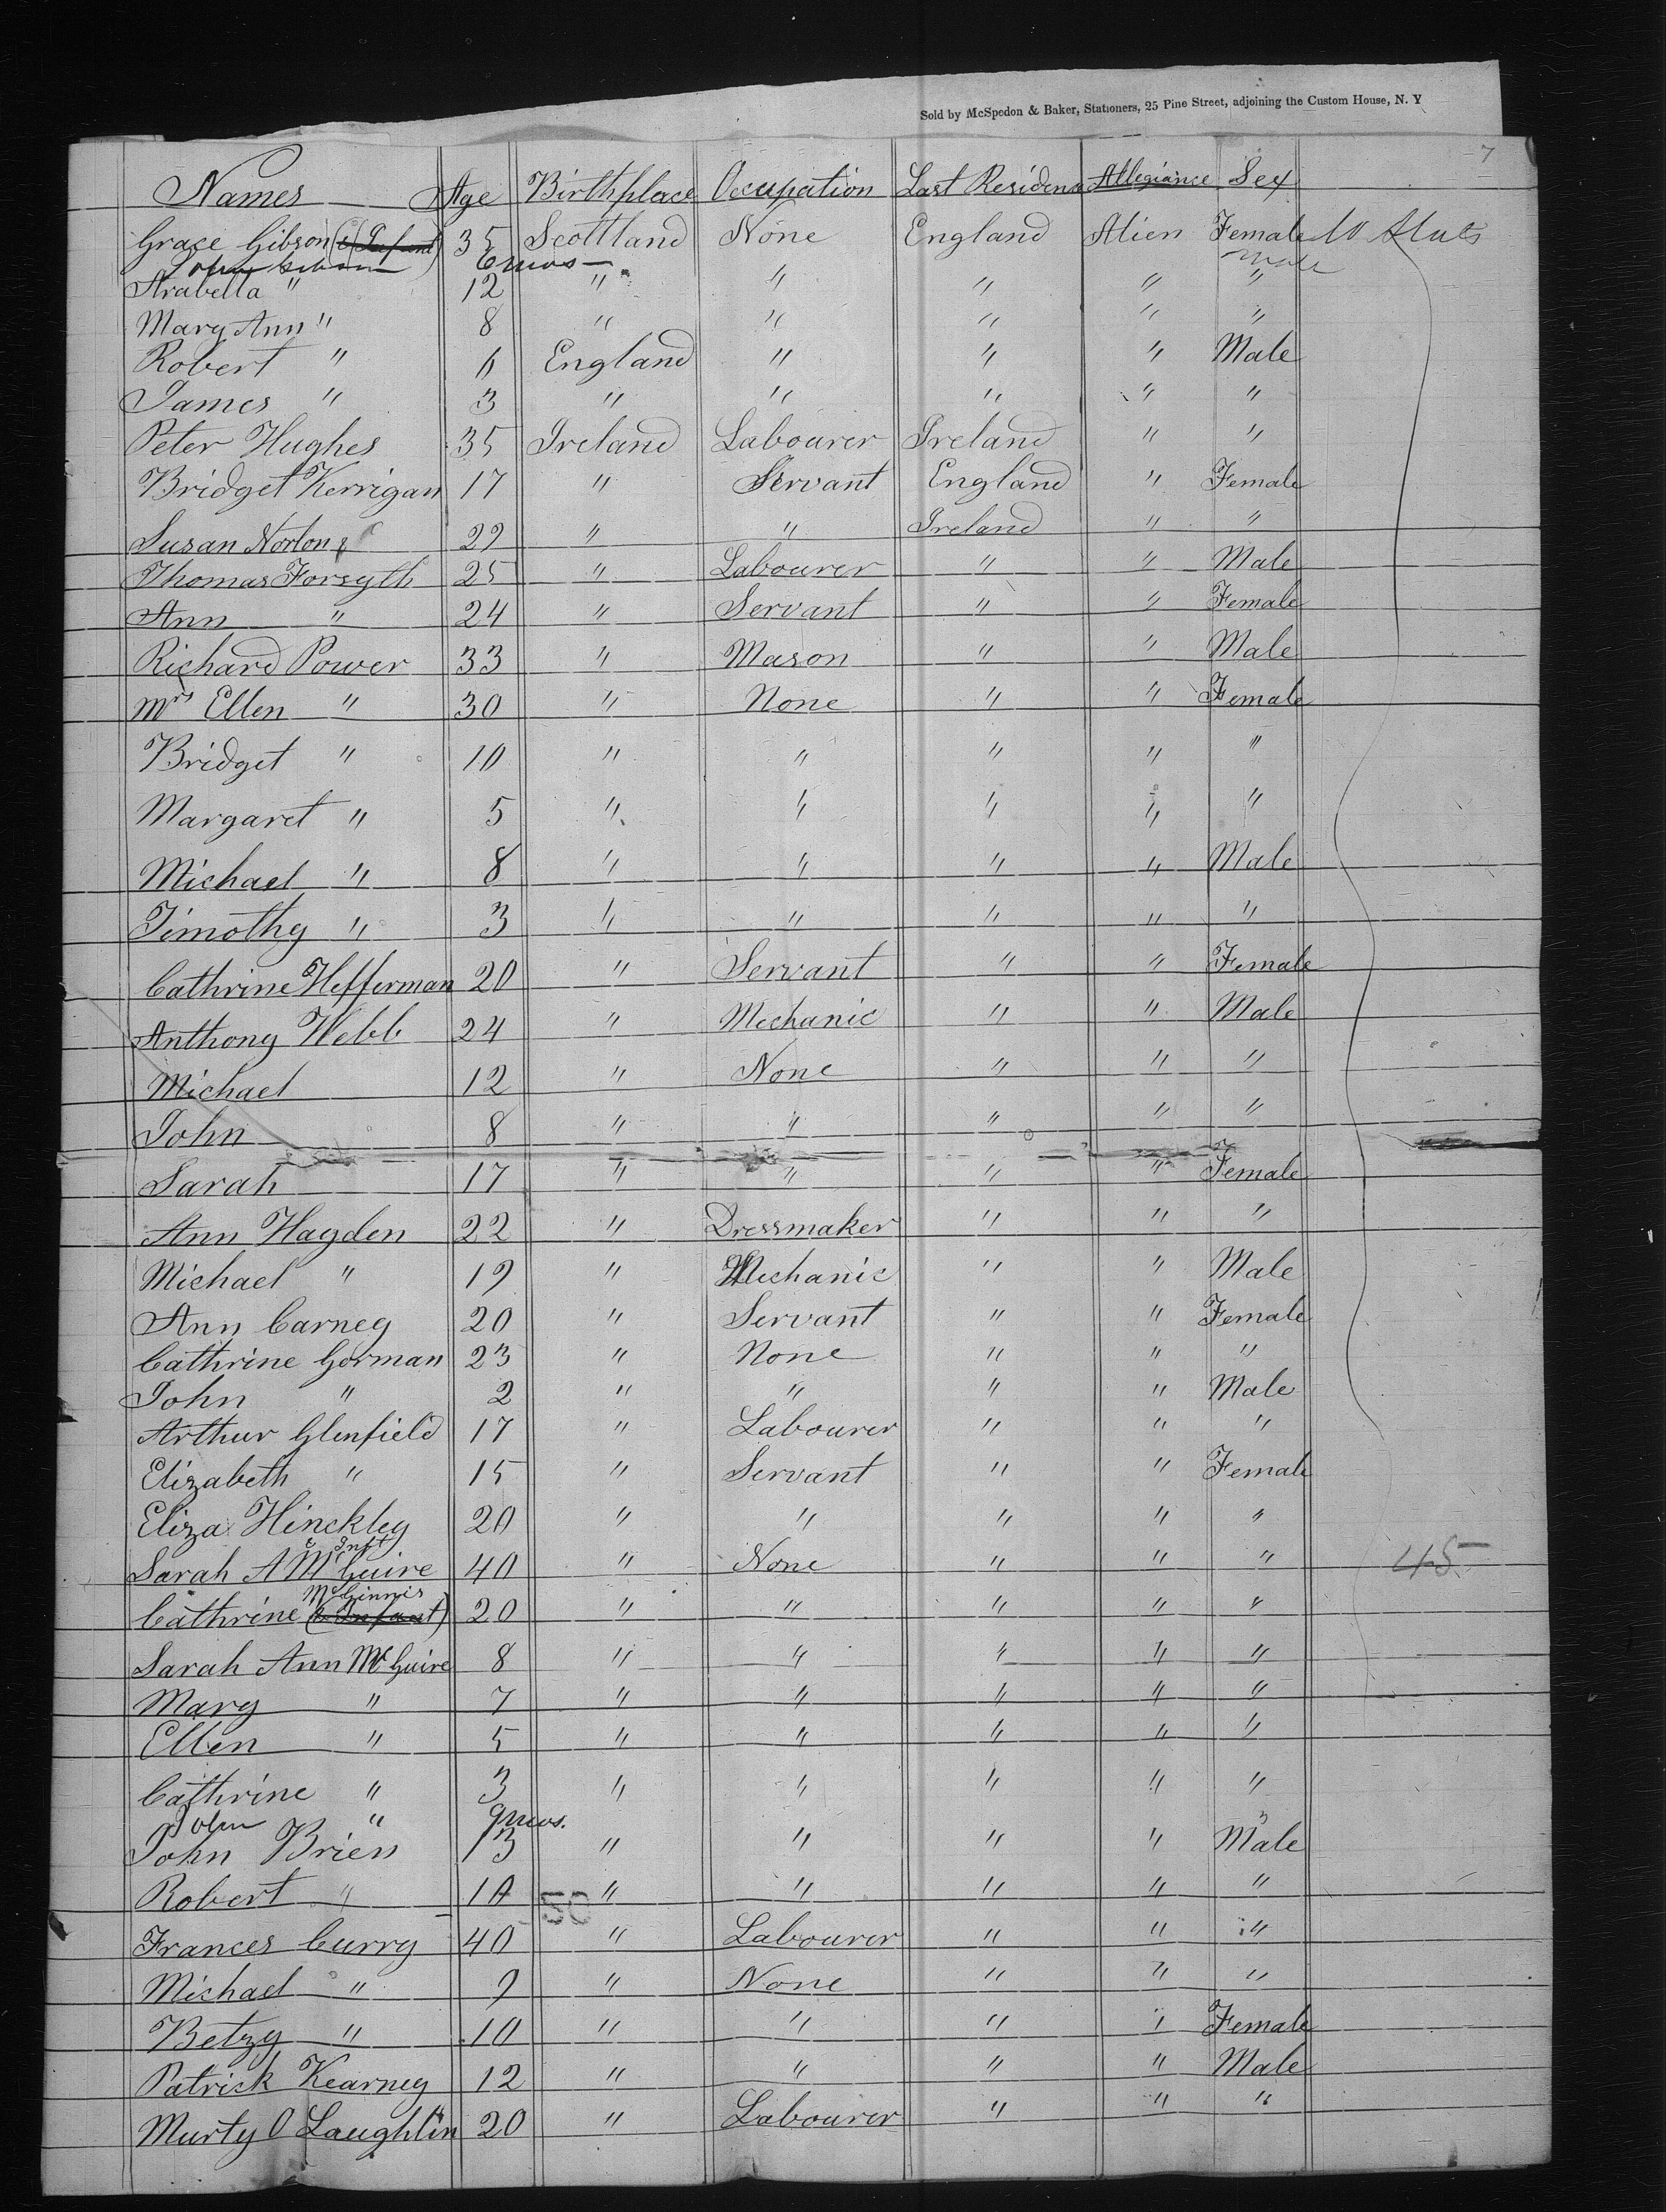 Sold by McSpedon & Baker, Stationers, 25 Pine Street, adjoining the Custom House, N. Y
7
Names Age Birthplace Occupation Last Residence Allegiance Sex
Grace Gibson (& Infant) 35 Scottland None England Alien Female U States
John Gibson 6 mos Male
Arabella " 12 " " " " "
Mary Ann " 8 " " " " "
Robert " 6 England " " " Male
James " 3 " " " " "
Peter Hughes 35 Ireland Labourer Ireland " "
Bridget Kerrigan 17 " Servant England " Female
Susan Norton 22 " " Ireland " "
Thomas Forsyth 25 " Labourer " " Male
Ann " 24 " Servant " " Female
Richard Power 33 " Mason " " Male
Mrs Ellen " 30 " None " " Female
Bridget " 10 " " " " "
Margaret " 5 " " " " "
Michael " 8 " " " " Male
Timothy " 3 " " " " "
Cathrine Hefferman 20 " Servant " " Female
Anthony Webb 24 " Mechanic " " Male
Michael 12 " None " " "
John 8 " " " " "
Sarah 17 " " " " Female
Ann Hayden 22 " Dressmaker " " "
Michael " 19 " Mechanic " " Male
Ann Carney 20 " Servant " " Female
Cathrine Gorman 23 " None " " "
John " 2 " " " " Male
Arthur Glenfield 17 " Labourer " " "
Elizabeth " 15 " Servant " " Female
Eliza Hinckley 20 " " " " "
& Inft
Sarah A McGuire 40 " None " " " 45
McGinnis
Cathrine (& Infant) 20 " " " " "
Sarah Ann McGuire 8 " " " " "
Mary " 7 " " " " "
Ellen " 5 " " " " "
Cathrine " 3 " " " " "
John " 9 mos.
John Brien 13 " " " " Male
Robert " 10 " " " " "
Frances Curry 40 " Labourer " " "
Michael " 9 " None " " "
Betzy " 10 " " " " Female
Patrick Kearney 12 " " " " Male
Murty O Laughlin 20 " Labourer " " "